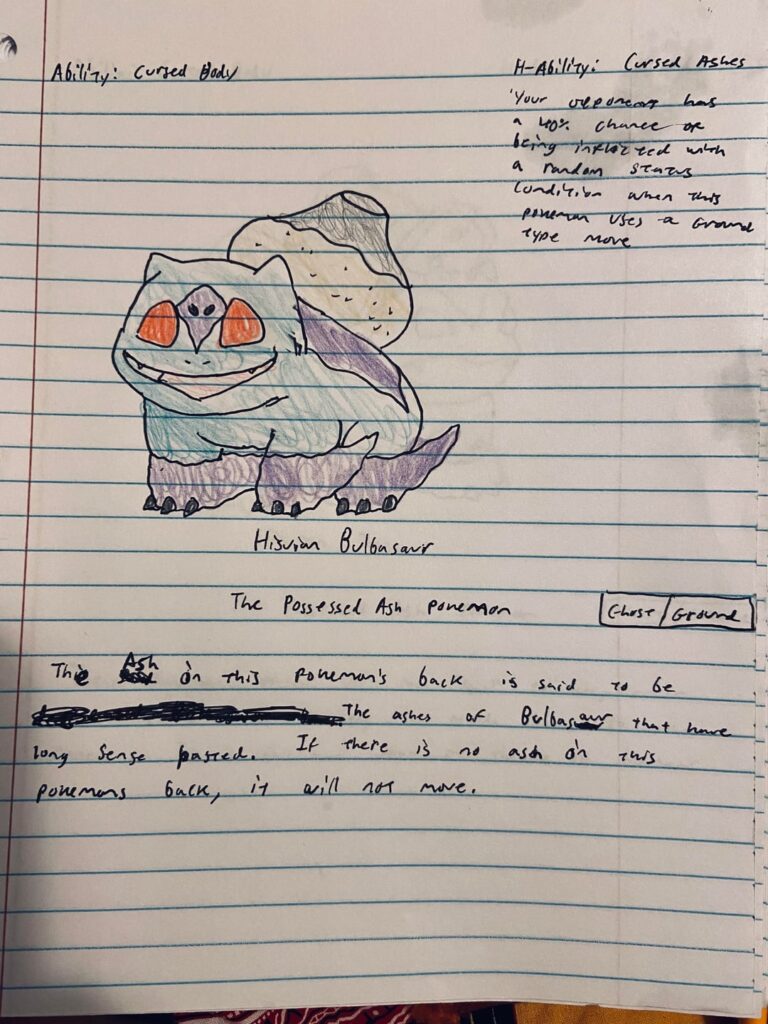 Ability: Cursed Body
H-Ability: Cursed Ashes
Your opponent has
a 40% chance of
being inflicted with
a random status
condition when this
pokemon uses a Ground
type move
Hisuian Bulbasaur
The Possessed Ash pokemon
Ghost/Ground
The Ash on this pokemon's back is said to be
The ashes of Bulbasaur that have
long sense passed. If there is no ash on this
pokemons back, it will not move.